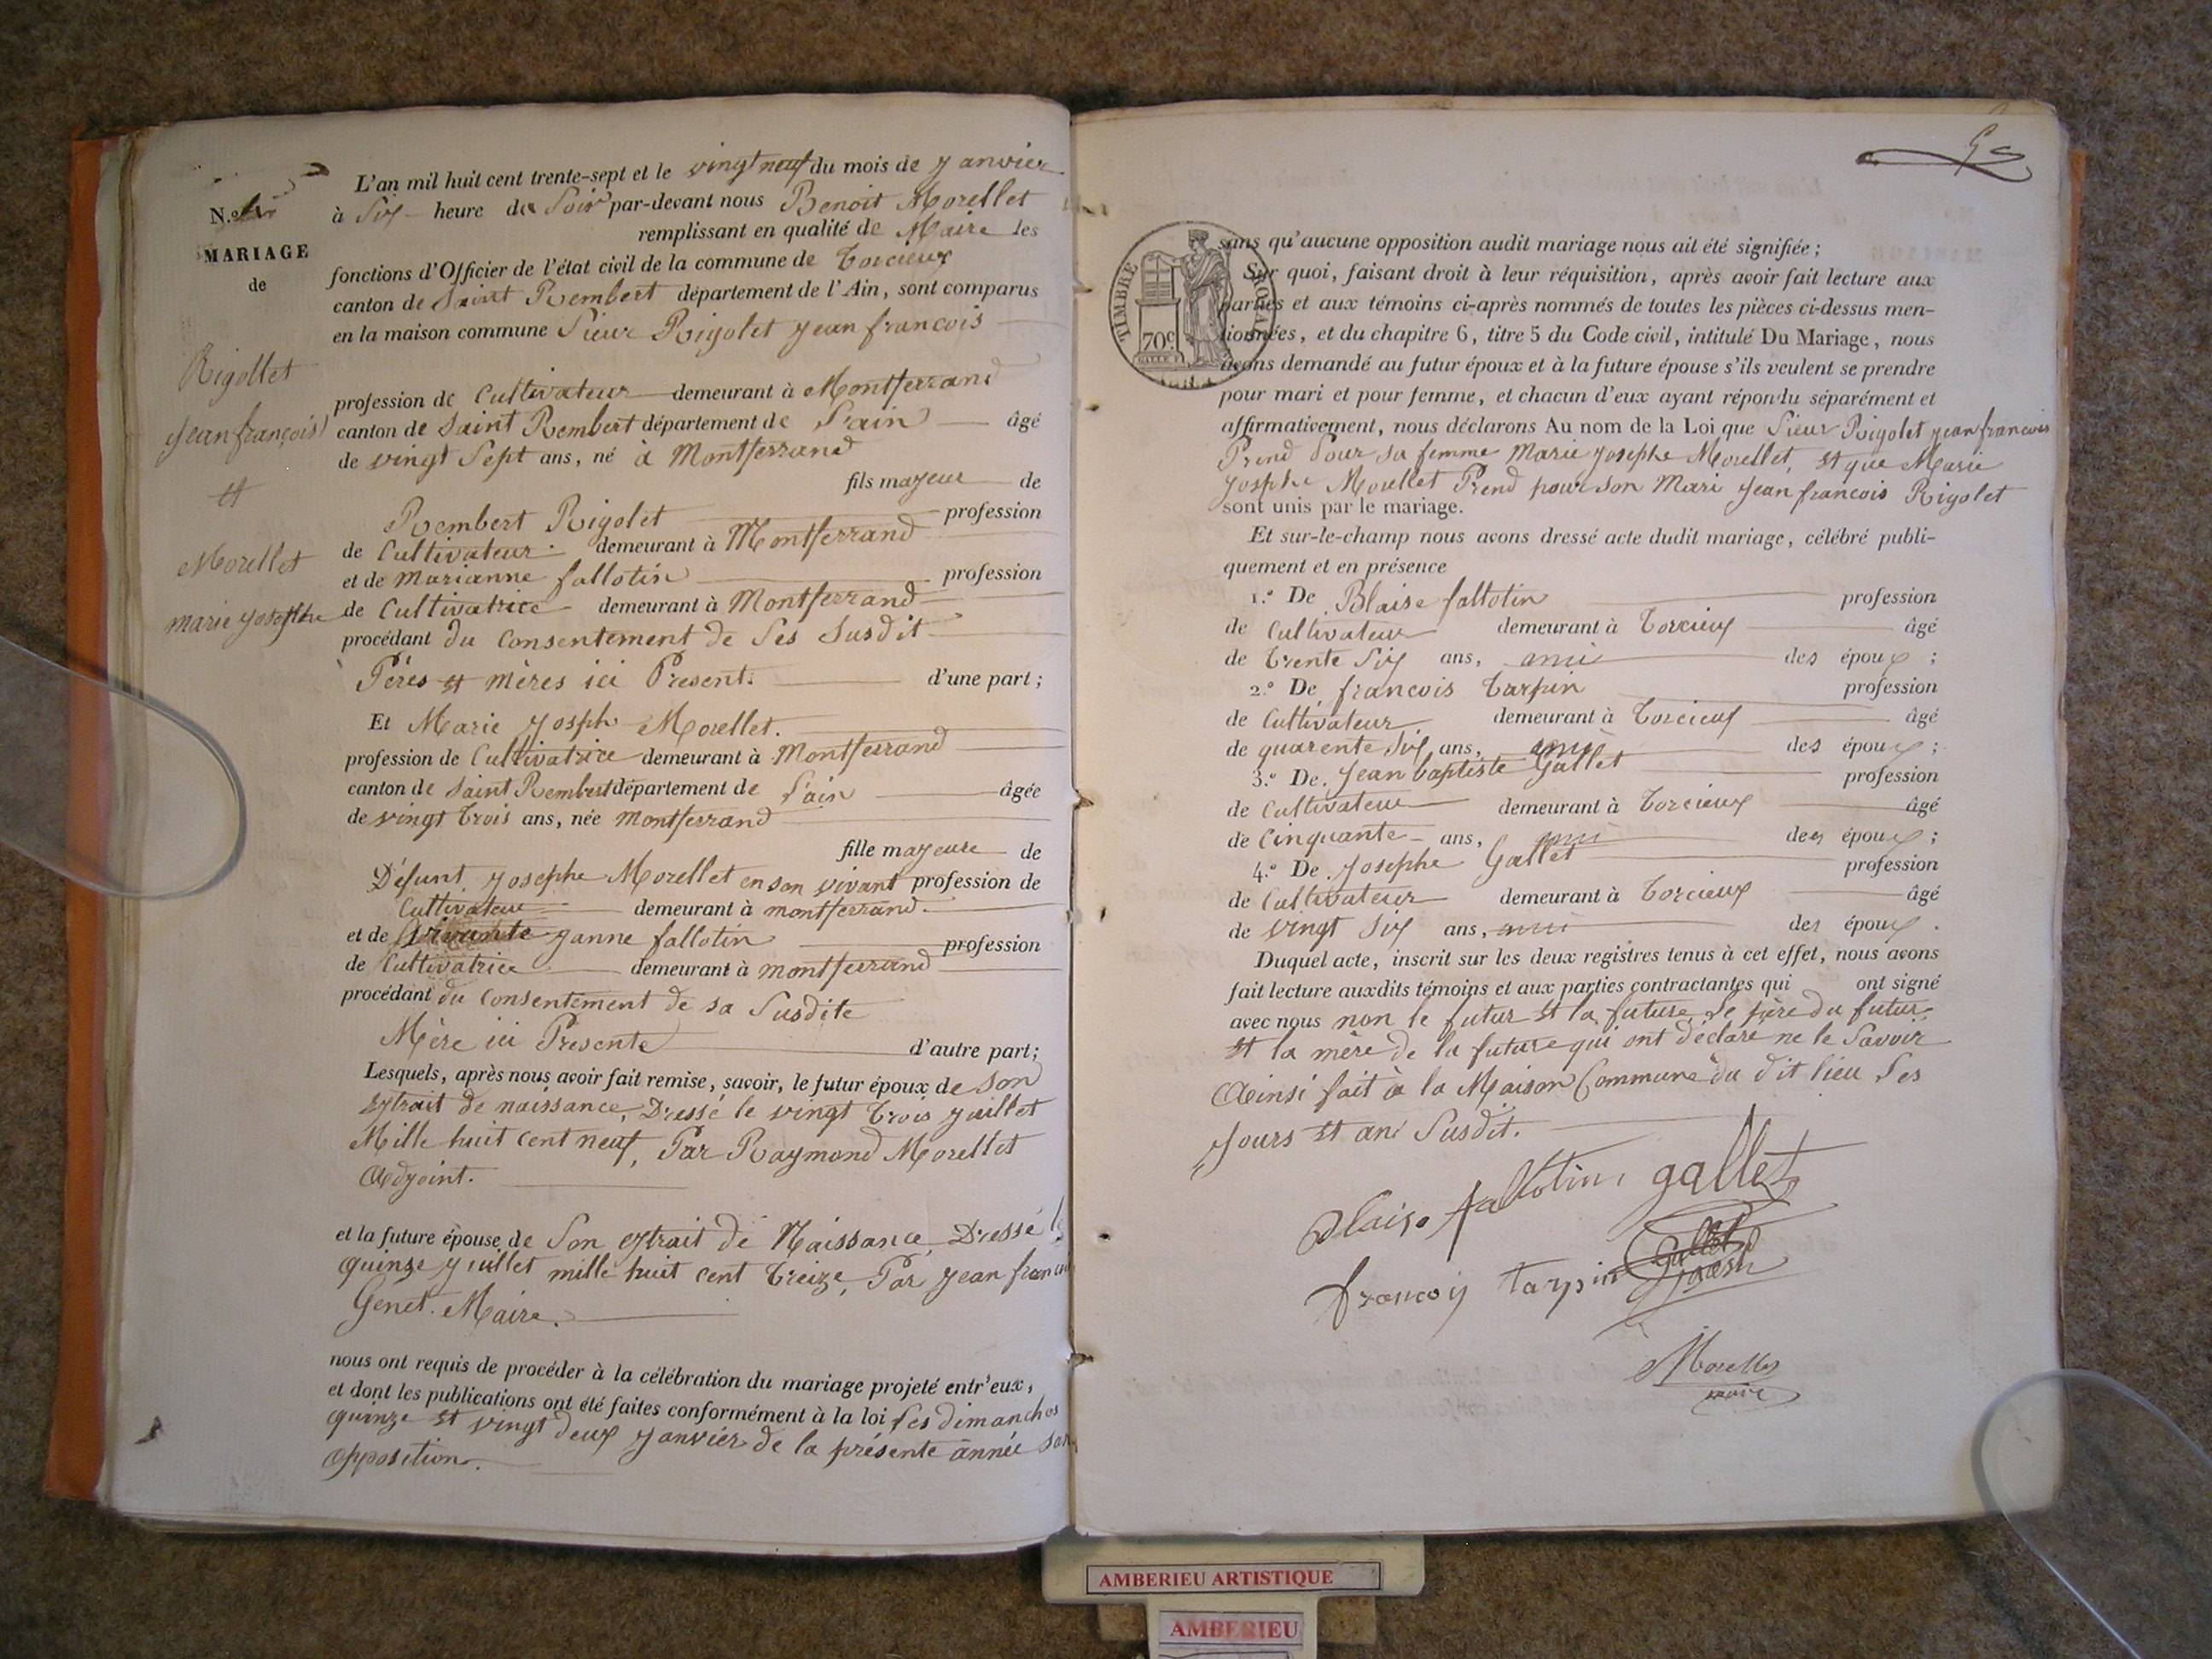 N.o
MARIAGE
de
Rigollet
Jean françois
et
Morellet
marie Josephe
L'an mil huit cent trente-sept et le vingt neuf du mois de Janvier
à Six heure de Soir par-devant nous Benoit Morellet
remplissant en qualité de Maire les
fonctions d'Officier de l'état civil de la commune de Torcieux
canton de Saint Rembert département de l'Ain, sont comparus
en la maison commune Sieur Rigolet Jean francois
profession de Cultivateur demeurant à Montferrand
canton de Saint Rembert département de L'ain âgé
de vingt Sept ans, né à Montferrand
fils majeur de
Rembert Rigolet profession
de Cultivateur demeurant à Montferrand
et de Marianne fallotin profession
de Cultivatrice demeurant à Montferrand
procédant du Consentement de Ses Susdit
Pères et mères ici Present. d'une part;
Et Marie Josph Morellet.
profession de Cultivatrice demeurant à Montferrand
canton de Saint Rembert département de L'ain âgée
de vingt Trois ans, née Montferrand
fille majeure de
Défunt Josephe Morellet en son vivant profession de
Cultivateur demeurant à montferrand.
et de Janne fallotin profession
de Cultivatrice demeurant à montferrand
procédant du Consentement de sa Susdite
Mère ici Presente d'autre part;
Lesquels, après nous avoir fait remise, savoir, le futur époux de Son
extrait de naissance, Dressé le vingt Trois Juillet
Mille huit cent neuf, Par Raymond Morellet
Adjoint.
et la future épouse de Son extrait de Naissance, Dressé le
quinze Juillet mille huit cent Treize, Par Jean franco
Genet. Maire.
nous ont requis de procéder à la célébration du mariage projeté entr'eux,
et dont les publications ont été faites conformément à la loi Les dimanches
quinze et vingt deux Janvier de la présente année san
opposition.
TIMBRE ROYAL
70c
sans qu'aucune opposition audit mariage nous ait été signifiée;
Sur quoi, faisant droit à leur réquisition, après avoir fait lecture aux
parties et aux témoins ci-après nommés de toutes les pièces ci-dessus men-
tionnées, et du chapitre 6, titre 5 du Code civil, intitulé Du Mariage, nous
avons demandé au futur époux et à la future épouse s'ils veulent se prendre
pour mari et pour femme, et chacun d'eux ayant répondu séparément et
affirmativement, nous déclarons Au nom de la Loi que Sieur Rigolet Jean francois
Prend Pour sa femme Marie Josephe Morellet, et que Marie
Josphe Morellet Prend pour son Mari Jean francois Rigolet
sont unis par le mariage.
Et sur-le-champ nous avons dressé acte dudit mariage, célébré publi-
quement et en présence
1.o De Blaise fallotin profession
de Cultivateur demeurant à Torcieux âgé
de Trente Six ans, ami des époux;
2.o De francois Tarpin profession
de Cultivateur demeurant à Torcieux âgé
de quarente Six ans, ami des époux;
3.o De Jean baptiste Gallet profession
de Cultivateur demeurant à Torcieux âgé
de Cinquante ans, ami des époux;
4.o De Josephe Gallet profession
de Cultivateur demeurant à Torcieux âgé
de vingt Six ans, ami des époux.
Duquel acte, inscrit sur les deux registres tenus à cet effet, nous avons
fait lecture auxdits témoins et aux parties contractantes qui ont signé
avec nous non le futur et la future, Le père du futur,
et la mère de la future qui ont déclaré ne le Savoir
Ainsi fait à la Maison Commune du dit lieu Les
Jours et an Susdit.
Blaise fallotin gallet
francoij tarpin Gallet
Josph
Morellet
maire
AMBERIEU ARTISTIQUE
AMBERIEU